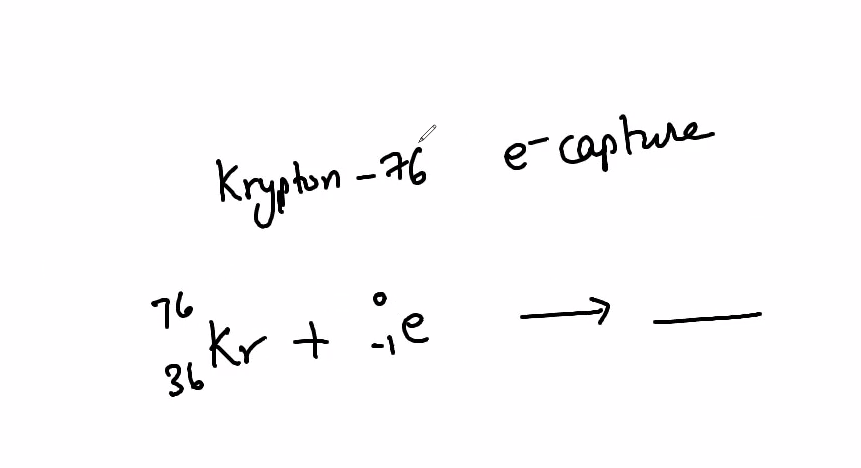 Krypton - 76 e⁻ capture
⁷⁶₃₆Kr + ⁰₋₁e → ____